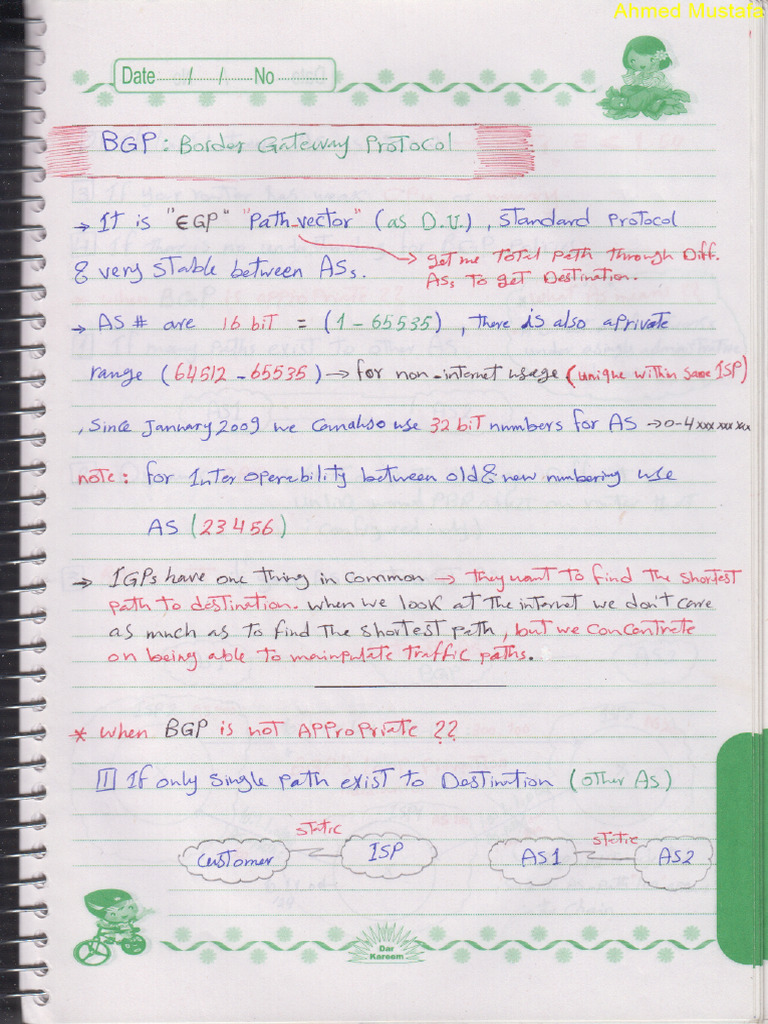 Ahmed Mustafa
Date / / No
BGP : Border Gateway Protocol
→ It is "EGP" "Path vector" (as D.V.) , standard protocol
→ get me total path through Diff.
& very stable between ASs.
ASs to get Destination.
→ AS # are 16 bit = (1 - 65535) , there is also a private
range (64512 - 65535) → for non-internet usage (unique within same ISP)
, since January 2009 we can also use 32 bit numbers for AS → 0-4xxx xxx xxx
note: for Inter operability between old & new numbering use
AS (23456)
→ IGPs have one thing in common → they want to find the shortest
path to destination. when we look at the internet we don't care
as much as to find the shortest path, but we concontrate
on being able to mainpulate traffic paths.
* when BGP is not Appropriate ??
1 If only single path exist to Destination (other As)
customer static ISP AS1 static AS2
Dar
Kareem